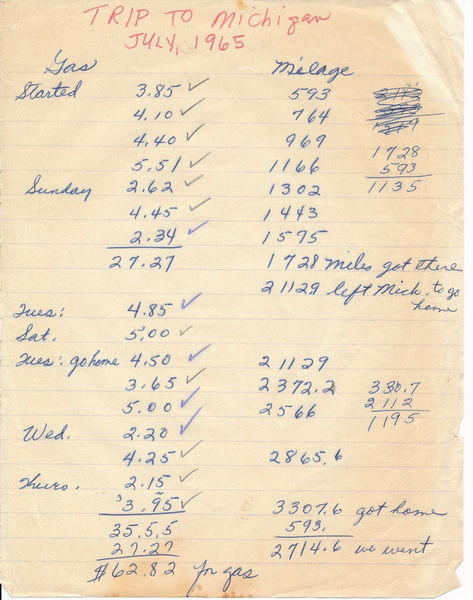 TRIP TO Michigan
JULY, 1965
Gas Milage
Started 3.85 ✓ 593
4.10 ✓ 764
4.40 ✓ 969
5.51 ✓ 1166 1728
Sunday 2.62 ✓ 1302 593
4.45 ✓ 1443 1135
2.34 ✓ 1595
27.27 1728 miles got there
21129 left Mich. to go home
Tues: 4.85 ✓
Sat. 5.00 ✓
Tues: go home 4.50 ✓ 21129
3.65 ✓ 2372.2 330.7
5.00 ✓ 2566 2112
Wed. 2.20 ✓ 1195
4.25 ✓ 2865.6
Thurs. 2.15 ✓
3.95 ✓ 3307.6 got home
35.5,5 593.
27.27 2714.6 we went
$62.82 for gas